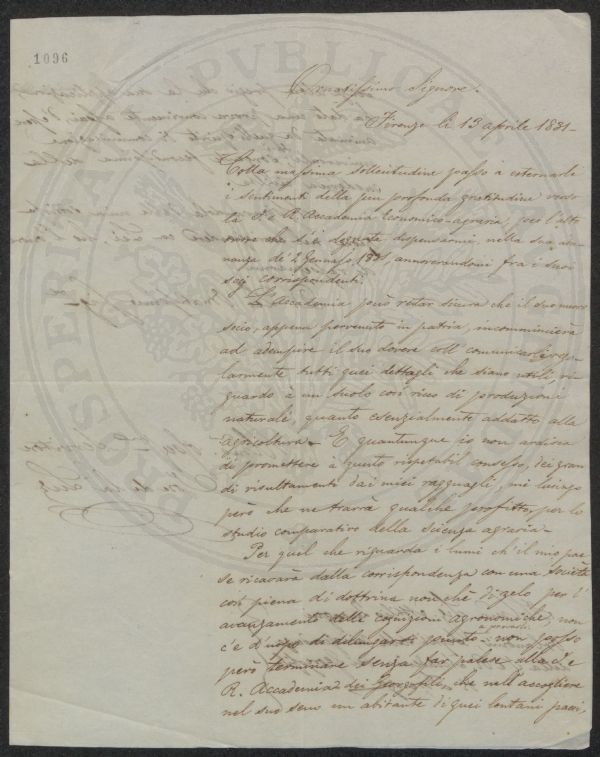 1096
Ornatissimo Signore.
Firenze li 13 aprile 1831-
Colla massima sollicitudine passo a esternarle
i sentimenti della piu profonda gratitudine verso
I. e R. Accademia Economico-agraria, per l'alto
onore che si è degnata dispensarmi, nella sua adu-
nanza de' 2 Gennajo, 1831, annoverandomi fra i suoi
socj corrispondenti.
L'Accademia può restar sicura che il suo nuovo
socio, appena pervenuto in patria, incomincierà
ad adempire il suo dovere coll comunicarle rego-
larmente tutti quei dettagli che siano utili, ri-
guardo à un suolo così ricco di produzioni
naturali, quanto esenzialmente addatto alla
agricoltura- E quantunque io non ardirei
di promettere à questo rispetabil consesso, dei gran-
di risultamenti dai miei ragguagli, mi lusingo
però che ne trarrà qualche profitto, per lo
studio comparativo della scienza agraria-
Per quel che riguarda i lumi ch'il mio pae-
se ricavarà dalla corrispondenza con una Società
così piena di dottrina non chè di zelo per l'
avanzamento delle cognizioni agronomiche, non
c'è d'uopo di dilungarsi a provarlo. non posso
però terminare senza far palese alla I. e
R. Accademia dei Georgofili, che nell'accogliere
nel suo seno un abitante di quei lontani paesi,